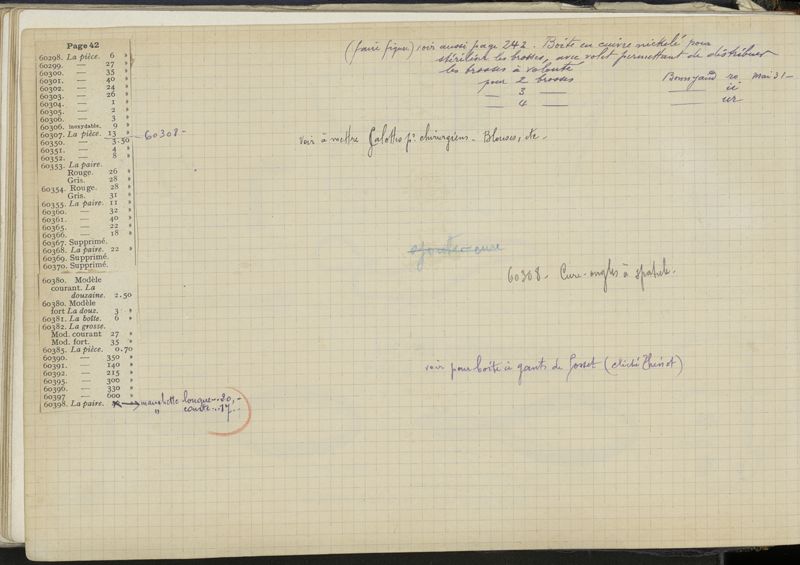 Page 42
60298. La pièce. 6 »
60299. — 27 »
60300. — 35 »
60301. — 40 »
60302. — 24 »
60303. — 26 »
60304. — 1 »
60305. — 2 »
60306. — 3 »
60306. Inoxydable. 9 »
60307. La pièce. 13 » — 60308 —
60350. — 3.50
60351. — 4 »
60352. — 8 »
60353. La paire.
Rouge. 26 »
Gris. 28 »
60354. Rouge. 28 »
Gris. 31 »
60355. La paire. 11 »
60360. — 32 »
60361. — 40 »
60365. — 22 »
60366. — 18 »
60367. Supprimé.
60368. La paire. 22 »
60369. Supprimé.
60370. Supprimé.
60380. Modèle
courant. La
douzaine. 2.50
60380. Modèle
fort La douz. 3 »
60381. La boîte. 6 »
60382. La grosse.
Mod. courant 27 »
Mod. fort. 35 »
60385. La pièce. 0.70
60390. — 350 »
60391. — 140 »
60392. — 215 »
60395. — 300 »
60396. — 330 »
60397 — 600 »
60398. La paire. manchette longue — 20, —
" courte .. 17 ..
(faire figurer) voir aussi page 242. Boîte en cuivre nickelé pour
stériliser les brosses, avec volet permettant de distribuer
les brosses à volonté
pour 2 brosses Bonnyaud mai 31 —
— 3 —
— 4 —
voir à mettre Calottes pr chirurgiens — Blouses, etc —
60308 — Cure-ongles à spatule.
voir pour boîte à gants de Gosset (cliché Thénot)